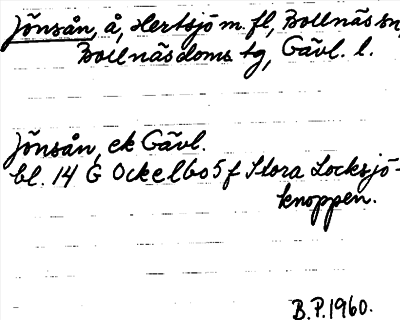 Jönsån, å, Hertsjö m. fl, Bollnäs sn,
Bollnäs doms. tg, Gävl. l.
Jönsån, ek Gävl.
bl. 14 G Ockelbo 5 f Stora Locksjö-
knoppen.
B.P. 1960.